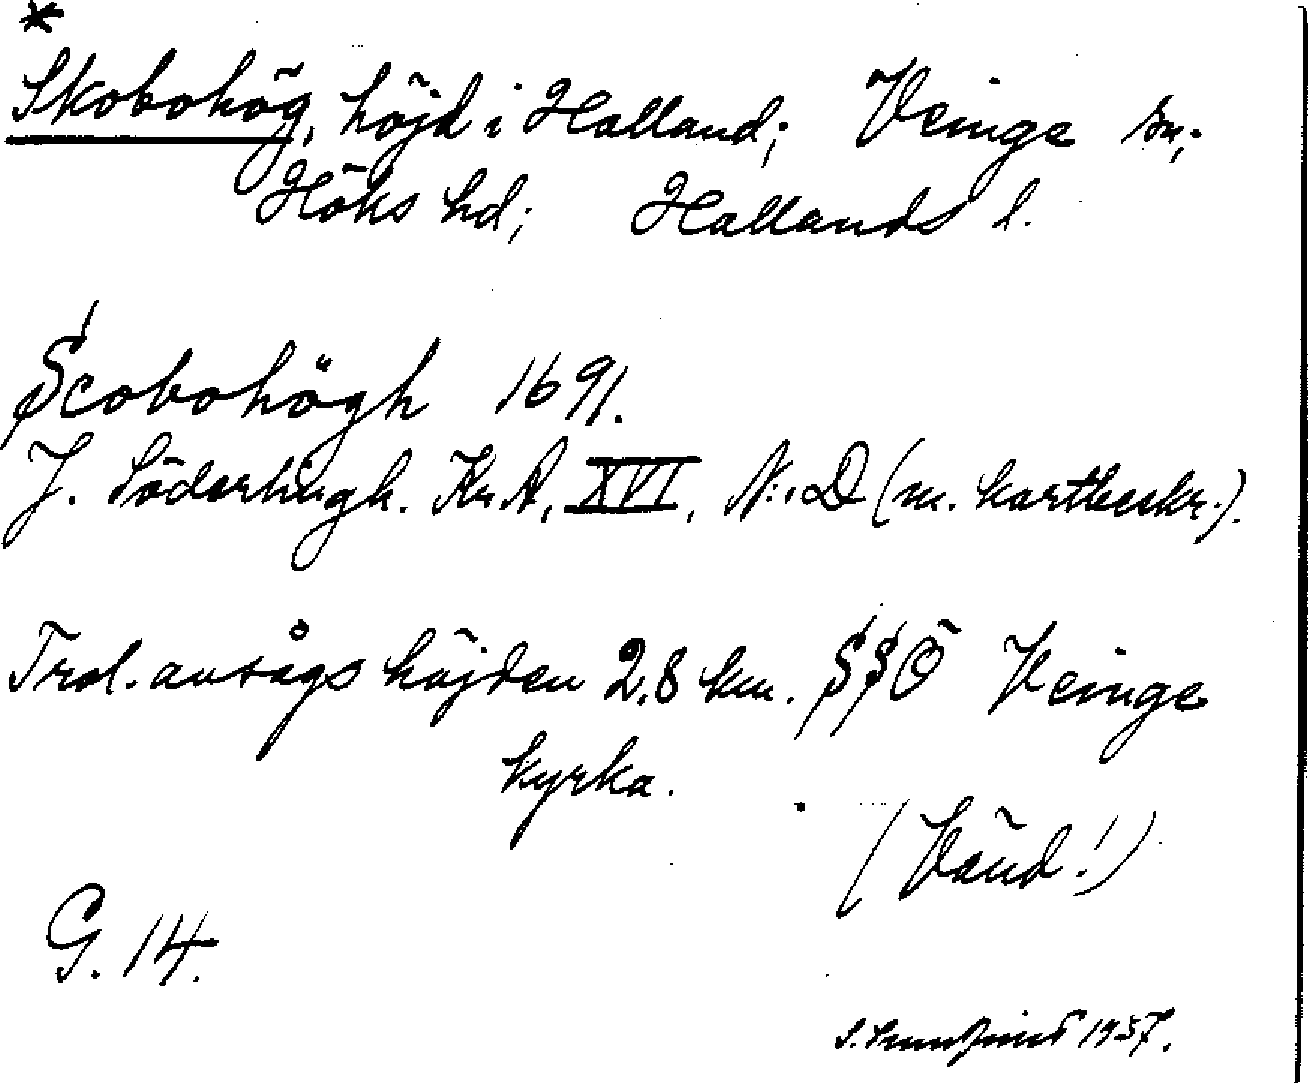 *
Skobohög, höjd i Halland; Veinge sn;
Höks hd; Hallands l.
Scobohögh 1691.
J. Söderhugh. Kr.A, XVI, N:.D (m. kartbeskr.).
Trol. avsågs höjden 2,8 km. SSÖ Veinge
kyrka.
(Vänd!)
G. 14.
S. 1957.